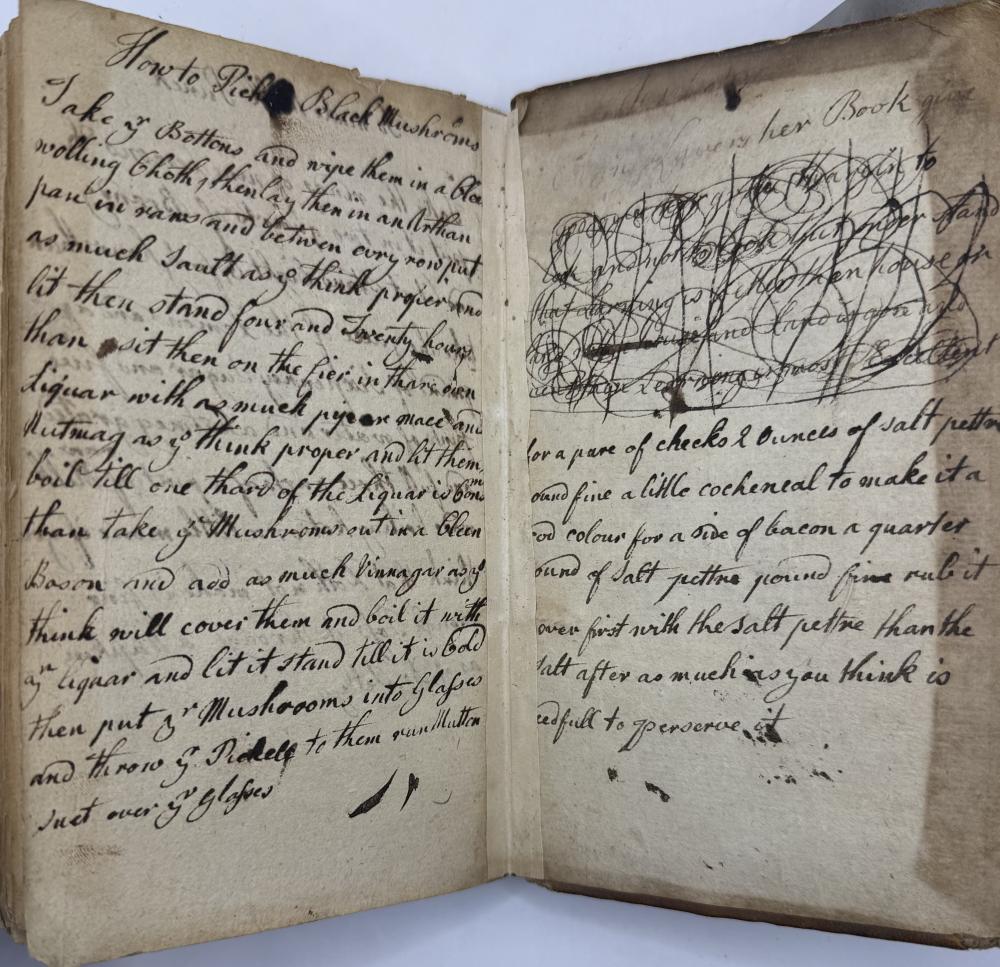 How to Pickle Black Mushroms
Take yr Bottons and wipe them in a Clea
wolling Cloth, then lay them in an Arthan
pan in raws and betwen evry row put
as much Sault as y think proper and
lit then stand four and Twenty hours
than sit then on the fier in thare own
Liquar with as much pepper mace and
Nutmag as yo think proper and lit them
boil till one thard of the Liquar is Con
than take yr Mushroms out in a Cleen
Bason and add as much Vinnagar as yo
think will cover them and boil it with
yr liquar and lit it stand till it is Cold
then put yr Mushrooms into Glasses
and throw yr Pickell to them run Mutton
suet over yr Glasses
her Book give
to
look and not to look but under stand
that larning is better then house or
land when house and land is gone and
Larning is most Excellent
for a pare of cheeks 2 Ounces of salt pettre
ound fine a little cocheneal to make it a
ood colour for a side of bacon a quarter
ound of salt pettre pound fine rub it
over first with the salt pettre than the
salt after as much as you think is
eedfull to perserve it